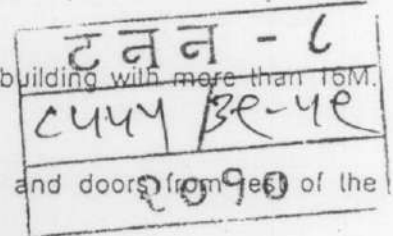 ट न न - ८
building with more than 16M.
८५५५ / ३९-५९
and doors from rest of the
२०१०